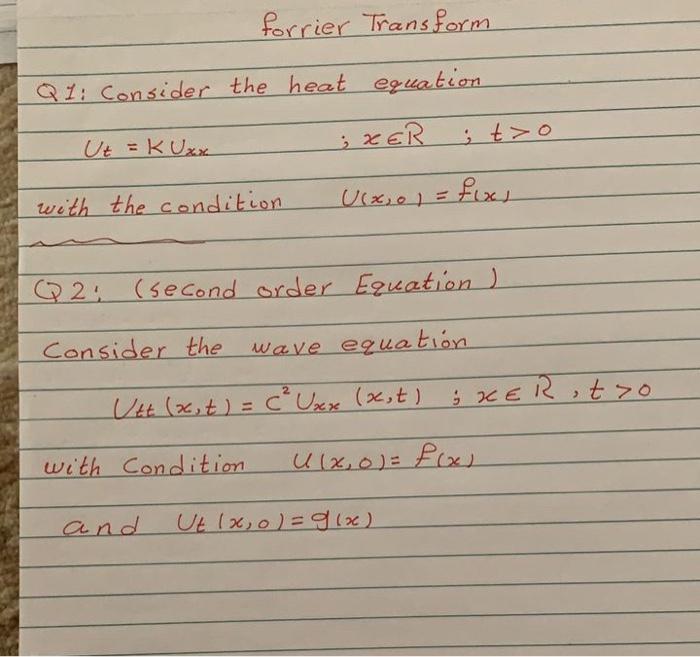 Forrier Transform
Q1: Consider the heat equation
Ut = K Uxx ; x ∈ R ; t > 0
with the condition U(x,0) = f(x)
Q2: (second order Equation)
Consider the wave equation
Utt (x,t) = C² Uxx (x,t) ; x ∈ R , t > 0
with Condition U(x,0) = f(x)
and Ut (x,0) = g(x)